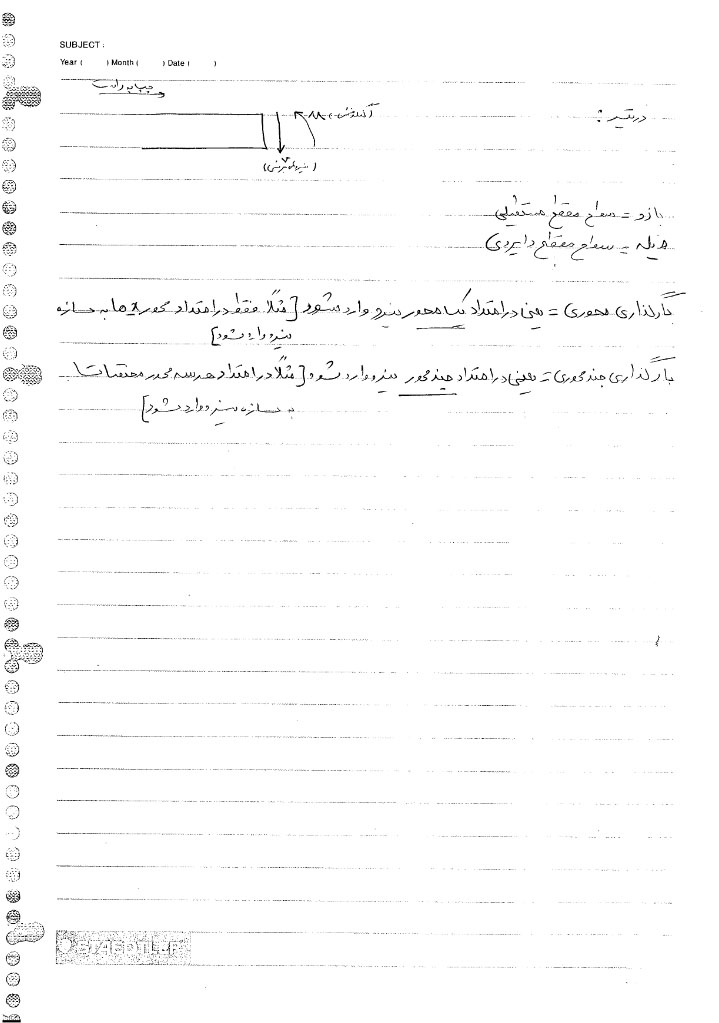 SUBJECT :
Year (      ) Month (      ) Date (      )
در تیر :
(نیروی برشی)
بازو = سطح مقطع مستطیلی
میله = سطح مقطع دایره‌ی
بارگذاری محوری = یعنی در امتداد یک محور نیرو وارد شود [مثلاً فقط در امتداد محور xها به سازه
نیرو وارد شود]
بارگذاری چند محوری = یعنی در امتداد چند محور نیرو وارد شود [مثلاً در امتداد هر سه محور مختصات
به سازه نیرو وارد شود]
STAEDTLER